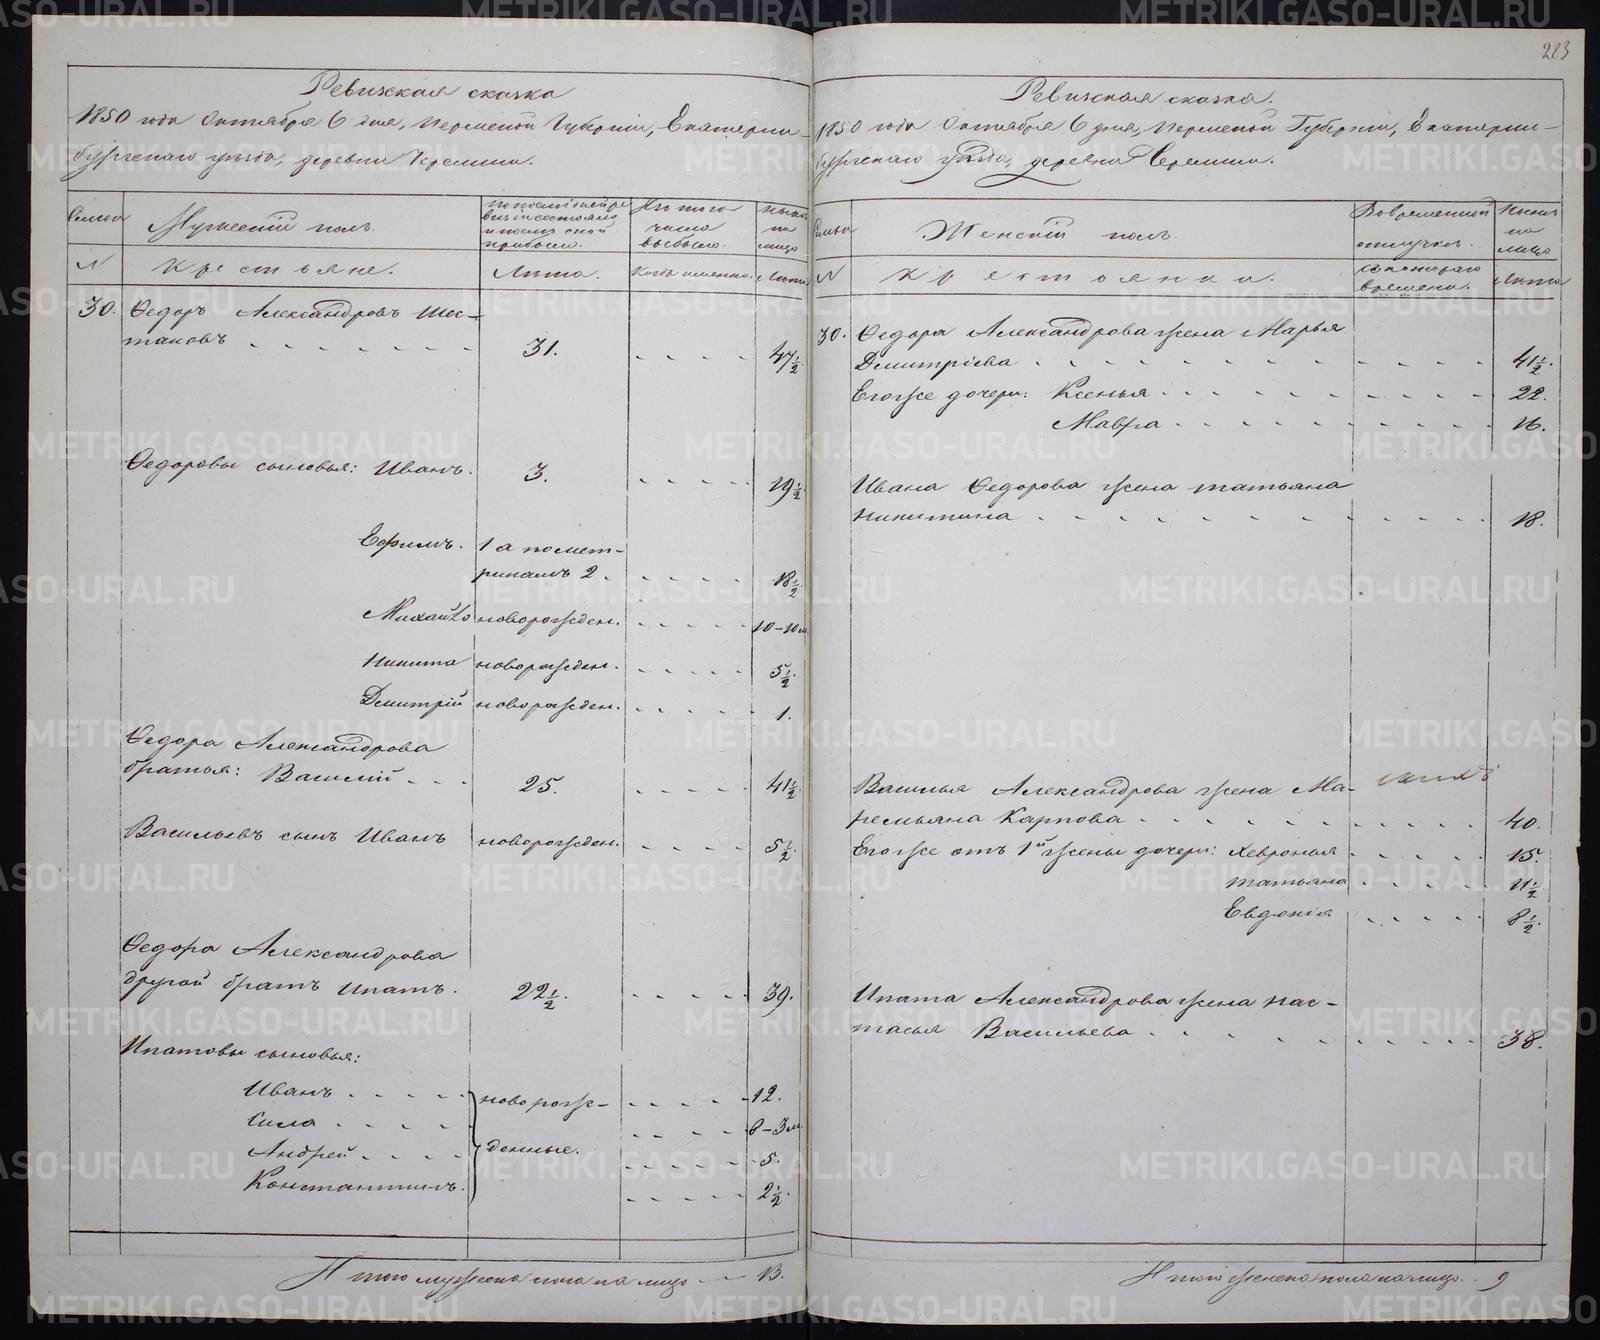 283
Ревизская сказка
1850 года Октября 6 дня, Пермской Губернiи, Екатерин-
бургскаго уѣзда, деревни Черемши.
Семьи
Мужескiй полъ.
По последней ре
визiи состояло
и после оной
прибыло.
Изъ того
числа
выбыло.
Нынѣ
на
лицо
№
Крестьяне.
Лѣта.
Когда именно.
Лѣта.
30. Ѳедоръ Александровъ Шес-
таковъ 31. 47½.
Ѳедоровы сыновья: Иванъ. 3. 19½
Ефимъ. 1 а по мет-
рикамъ 2. 18½.
Михайло новорожден. 10-10 м.
Никита новорожден. 5½.
Дмитрiй новорожден. 1.
Ѳедора Александрова
братья: Василiй 25. 41½.
Васильевъ сынъ Иванъ новорожден. 5½.
Ѳедора Александрова
другой братъ Ипатъ. 22½. 39.
Ипатовы сыновья:
Иванъ новорож- 12.
Сила 8-3 м.
Андрей денные. 5.
Константинъ. 2½.
Итого мужеска пола на лицо 13.
Ревизская сказка.
1850 года Октября 6 дня, Пермской Губернiи, Екатерин-
бургскаго уѣзда, деревни Черемши.
Семьи
Женскiй полъ.
Во временной
отлучкѣ.
Нынѣ
на
лицо
№
Крестьянки.
Съ котораго
времени.
Лѣта
30. Ѳедора Александрова жена Марья
Дмитрiева 41½.
Егоже дочери: Ксенья 22.
Мавра 16.
Ивана Ѳедорова жена Татьяна
Никитина 18.
Василья Александрова жена Ма-
ремьяна Карпова 40.
Егоже отъ 1й жены дочери: Хевронья 15.
Татьяна 11½.
Евдокiя 8½.
Ипата Александрова жена Нас-
тасья Васильева 38.
Итого женска пола на лицо 9
METRIKI.GASO-URAL.RU